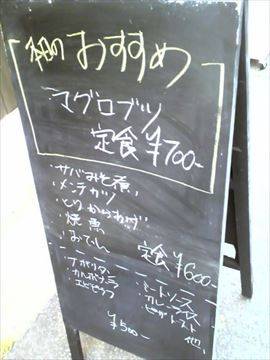 本日のおすすめ
マグロブツ
定食 ¥700-
・サバみそ煮
・メンチカツ
・とりからあげ
・焼魚
・おでん
定食 ¥600-
・ナポリタン
・カルボナーラ
・エビピラフ
・ミートソース
・カレーライス
・ピザトースト
他
¥500-